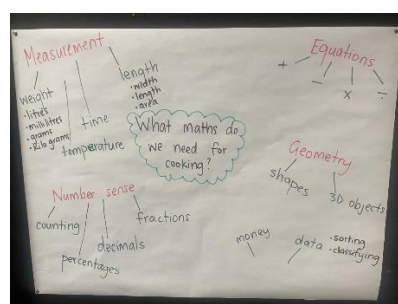 Measurement
weight
·litres
·millilitres
·grams
·kilograms
temperature
time
length
·width
·length
·area
Equations
+
−
×
÷
What maths do
we need for
cooking?
Geometry
shapes
3D objects
Number sense
counting
percentages
decimals
fractions
money
data
·sorting
·classifying